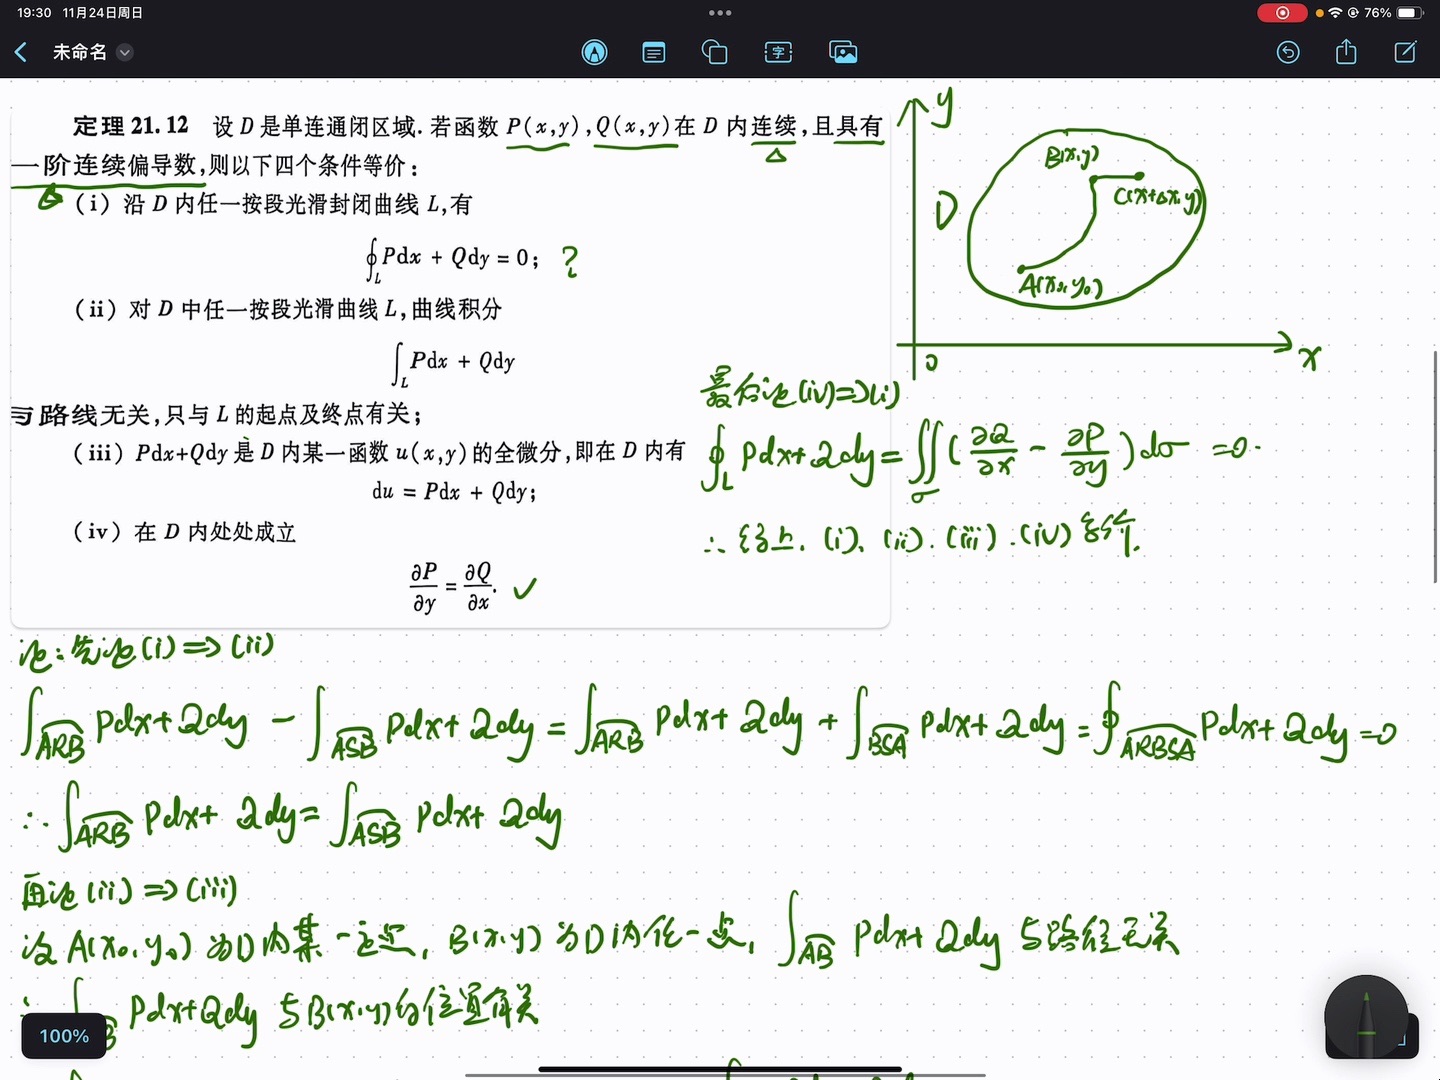 19:30 11月24日周日
76%
未命名
定理 21.12 设 D 是单连通闭区域. 若函数 P(x,y),Q(x,y)在 D 内连续,且具有
一阶连续偏导数,则以下四个条件等价:
(i) 沿 D 内任一按段光滑封闭曲线 L,有
∮_L Pdx + Qdy = 0; ?
(ii) 对 D 中任一按段光滑曲线 L,曲线积分
∫_L Pdx + Qdy
与路线无关,只与 L 的起点及终点有关;
(iii) Pdx+Qdy 是 D 内某一函数 u(x,y)的全微分,即在 D 内有
du = Pdx + Qdy;
(iv) 在 D 内处处成立
∂P/∂y = ∂Q/∂x. ✓
y
D
B(x,y)
C(x+Δx,y)
A(x₀,y₀)
0
x
最后证(iv)⇒(i)
∮_L Pdx+Qdy=∬_σ(∂Q/∂x - ∂P/∂y)dσ =0.
∴ 综上, (i)、(ii).(iii).(iv)等价.
证:先证(i)⇒(ii)
∫_ARB Pdx+Qdy - ∫_ASB Pdx+Qdy = ∫_ARB Pdx+Qdy + ∫_BSA Pdx+Qdy = ∮_ARBSA Pdx+Qdy =0
∴ ∫_ARB Pdx+Qdy = ∫_ASB Pdx+Qdy
再证(ii)⇒(iii)
设A(x₀,y₀)为D内某一定点, B(x,y)为D内任一点, ∫_AB Pdx+Qdy 与路径无关
∫ Pdx+Qdy 与B(x,y)的位置有关
100%